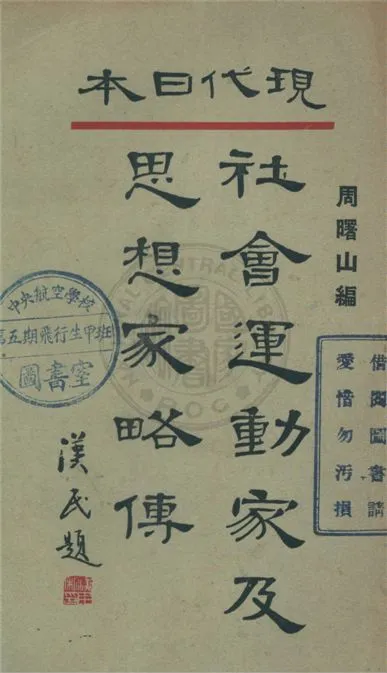 現代日本
社會運動家及
思想家略傳
周曙山編
漢民題
借閱圖書請
愛惜勿汚損
中央航空學校
第五期飛行生甲班
圖書室
NATIONAL CENTRAL LIBRARY
ROC